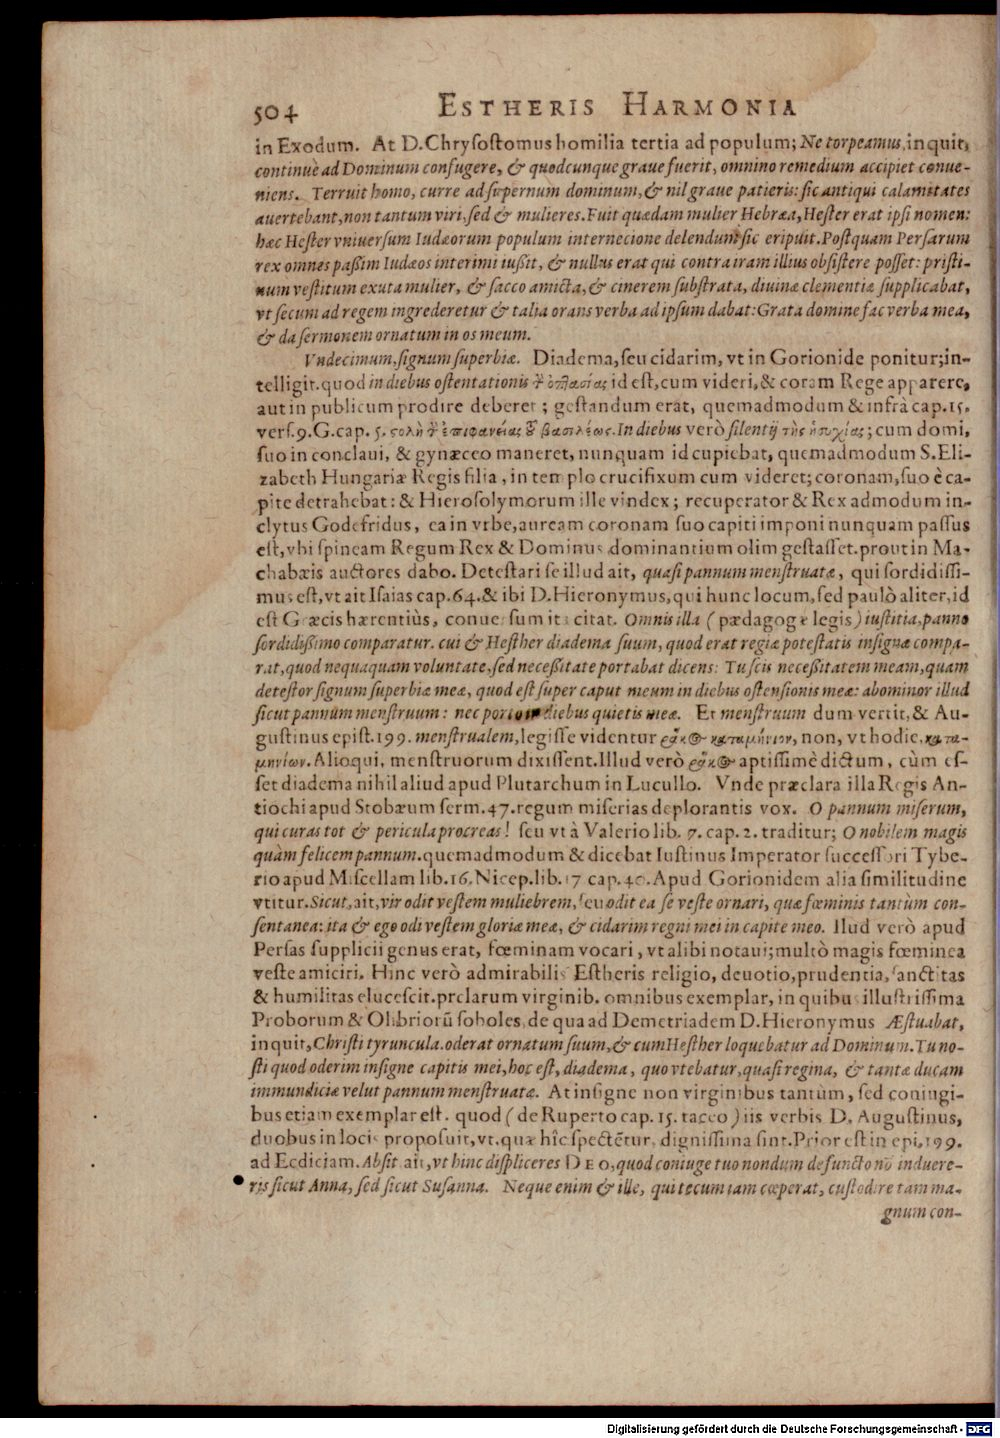 504 ESTHERIS HARMONIA
in Exodum. At D.Chrysostomus homilia tertia ad populum; Ne torpeamus, inquit,
continuè ad Dominum confugere, & quodcunque graue fuerit, omnino remedium accipiet conue-
niens. Terruit homo, curre ad supernum dominum, & nil graue patieris: sic antiqui calamitates
auertebant, non tantum viri, sed & mulieres. Fuit quædam mulier Hebræa, Hester erat ipsi nomen:
hæc Hester vniuersum Iudæorum populum internecione delendum sic eripuit. Postquam Persarum
rex omnes passim Iudæos interimi iussit, & nullus erat qui contra iram illius obsistere posset: pristi-
num vestitum exuta mulier, & sacco amicta, & cinerem substrata, diuinæ clementiæ supplicabat,
vt secum ad regem ingrederetur & talia orans verba ad ipsum dabat: Grata domine fac verba mea,
& da sermonem ornatum in os meum.
Vndecimum, signum superbiæ. Diadema, seu cidarim, vt in Gorionide ponitur; in-
telligit. quod in diebus ostentationis τ͂ ὀπτασίας id est, cum videri, & coram Rege apparere,
aut in publicum prodire deberet; gestandum erat, quemadmodum & infrà cap.15.
vers.9.G.cap. 5. ςολὴ τ͂ ἐπιφανείας τ͂ βασιλέως. In diebus verò silentij τῆς ἡσυχίας; cum domi,
suo in conclaui, & gynæceo maneret, nunquam id cupiebat, quemadmodum S.Eli-
zabeth Hungariæ Regis filia, in templo crucifixum cum videret; coronam, suo è ca-
pite detrahebat: & Hierosolymorum ille vindex; recuperator & Rex admodum in-
clytus Godefridus, ea in vrbe, auream coronam suo capiti imponi nunquam passus
est, vbi spineam Regum Rex & Dominus dominantium olim gestasset. prout in Ma-
chabæis auctores dabo. Detestari se illud ait, quasi pannum menstruatæ, qui sordidissi-
mus est, vt ait Isaias cap.64. & ibi D.Hieronymus, qui hunc locum, sed paulò aliter, id
est Græcis hærentiùs, conuersum ita citat. Omnis illa (pædagogæ legis) iustitia, panno
sordidissimo comparatur. cui & Hesther diadema suum, quod erat regiæ potestatis insigne compa-
rat, quod nequaquam voluntate, sed necessitate portabat dicens: Tu scis necessitatem meam, quam
detestor signum superbiæ meæ, quod est super caput meum in diebus ostensionis meæ: abominor illud
sicut pannum menstruum: nec porto in diebus quietis meæ. Et menstruum dum vertit, & Au-
gustinus epist.199. menstrualem, legisse videntur ῥάκ@ καταμήνιον, non, vt hodie, κατα-
μηνίων. Alioqui, menstruorum dixissent. Illud verò ῥάκ@ aptissimè dictum, cùm es-
set diadema nihil aliud apud Plutarchum in Lucullo. Vnde præclara illa Regis An-
tiochi apud Stobæum serm.47. regum miserias deplorantis vox. O pannum miserum,
qui curas tot & pericula procreas! seu vt à Valerio lib. 7. cap. 2. traditur; O nobilem magis
quàm felicem pannum. quemadmodum & dicebat Iustinus Imperator successori Tybe-
rio apud Miscellam lib.16. Nicep.lib.17 cap.40. Apud Gorionidem alia similitudine
vtitur. Sicut, ait, vir odit vestem muliebrem, seu odit ea se veste ornari, quæ fœminis tantùm con-
sentanea: ita & ego odi vestem gloriæ meæ, & cidarim regni mei in capite meo. Ilud verò apud
Persas supplicii genus erat, fœminam vocari, vt alibi notaui; multò magis fœminea
veste amiciri. Hinc verò admirabilis Estheris religio, deuotio, prudentia, sanctitas
& humilitas elucescit. prclarum virginib. omnibus exemplar, in quibus illustrissima
Proborum & Olibriorũ soboles. de qua ad Demetriadem D.Hieronymus Æstuabat,
inquit, Christi tyruncula. oderat ornatum suum, & cum Hesther loquebatur ad Dominum. Tu no-
sti quod oderim insigne capitis mei, hoc est, diadema, quo vtebatur, quasi regina, & tantæ ducam
immundiciæ velut pannum menstruatæ. At insigne non virginibus tantùm, sed coniugi-
bus etiam exemplar est. quod (de Ruperto cap. 15. taceo) iis verbis D. Augustinus,
duobus in locis proposuit, vt, quæ hîc spectẽtur, dignissima sint. Prior est in epi.199.
ad Ecdiciam. Absit ait, vt hinc displiceres DEO, quod coniuge tuo nondum defuncto nõ induere-
ris sicut Anna, sed sicut Susanna. Neque enim & ille, qui tecum iam cœperat, custodire tam ma-
gnum con-
Digitalisierung gefördert durch die Deutsche Forschungsgemeinschaft - DFG